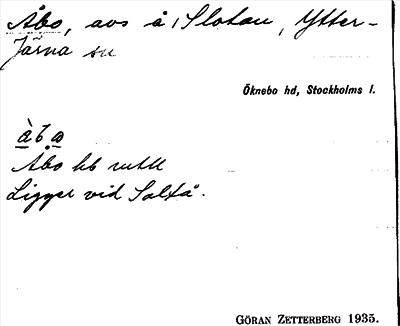 Åbo, avs å i Slotau, Ytter-
Järna sn
Öknebo hd, Stockholms l.
à b ω
Åbo hb uttl
Ligger vid Saltå.
GÖRAN ZETTERBERG 1935.